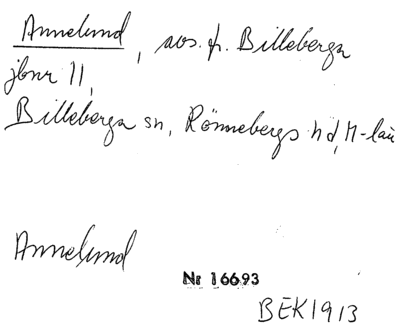 Annelund, avs. fr. Billeberga
jbnr 11,
Billeberga sn, Rönnebergs hd, M-län
Annelund
Nr 16693
BEK1913